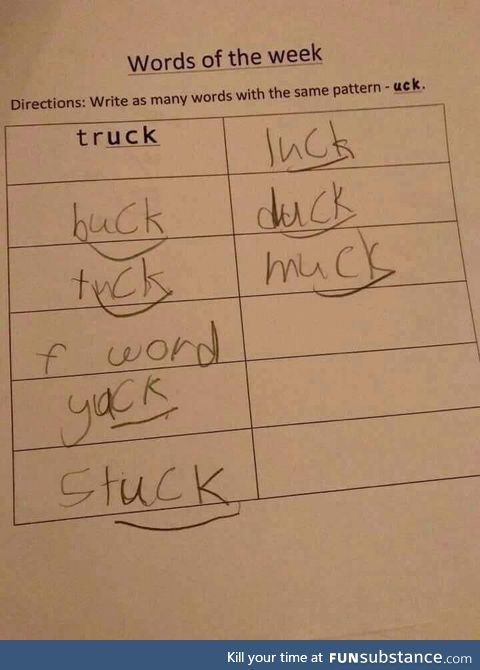 Words of the week
Directions: Write as many words with the same pattern - uck.
truck
luck
buck
duck
tuck
muck
f word
yuck
stuck
Kill your time at FUNsubstance.com